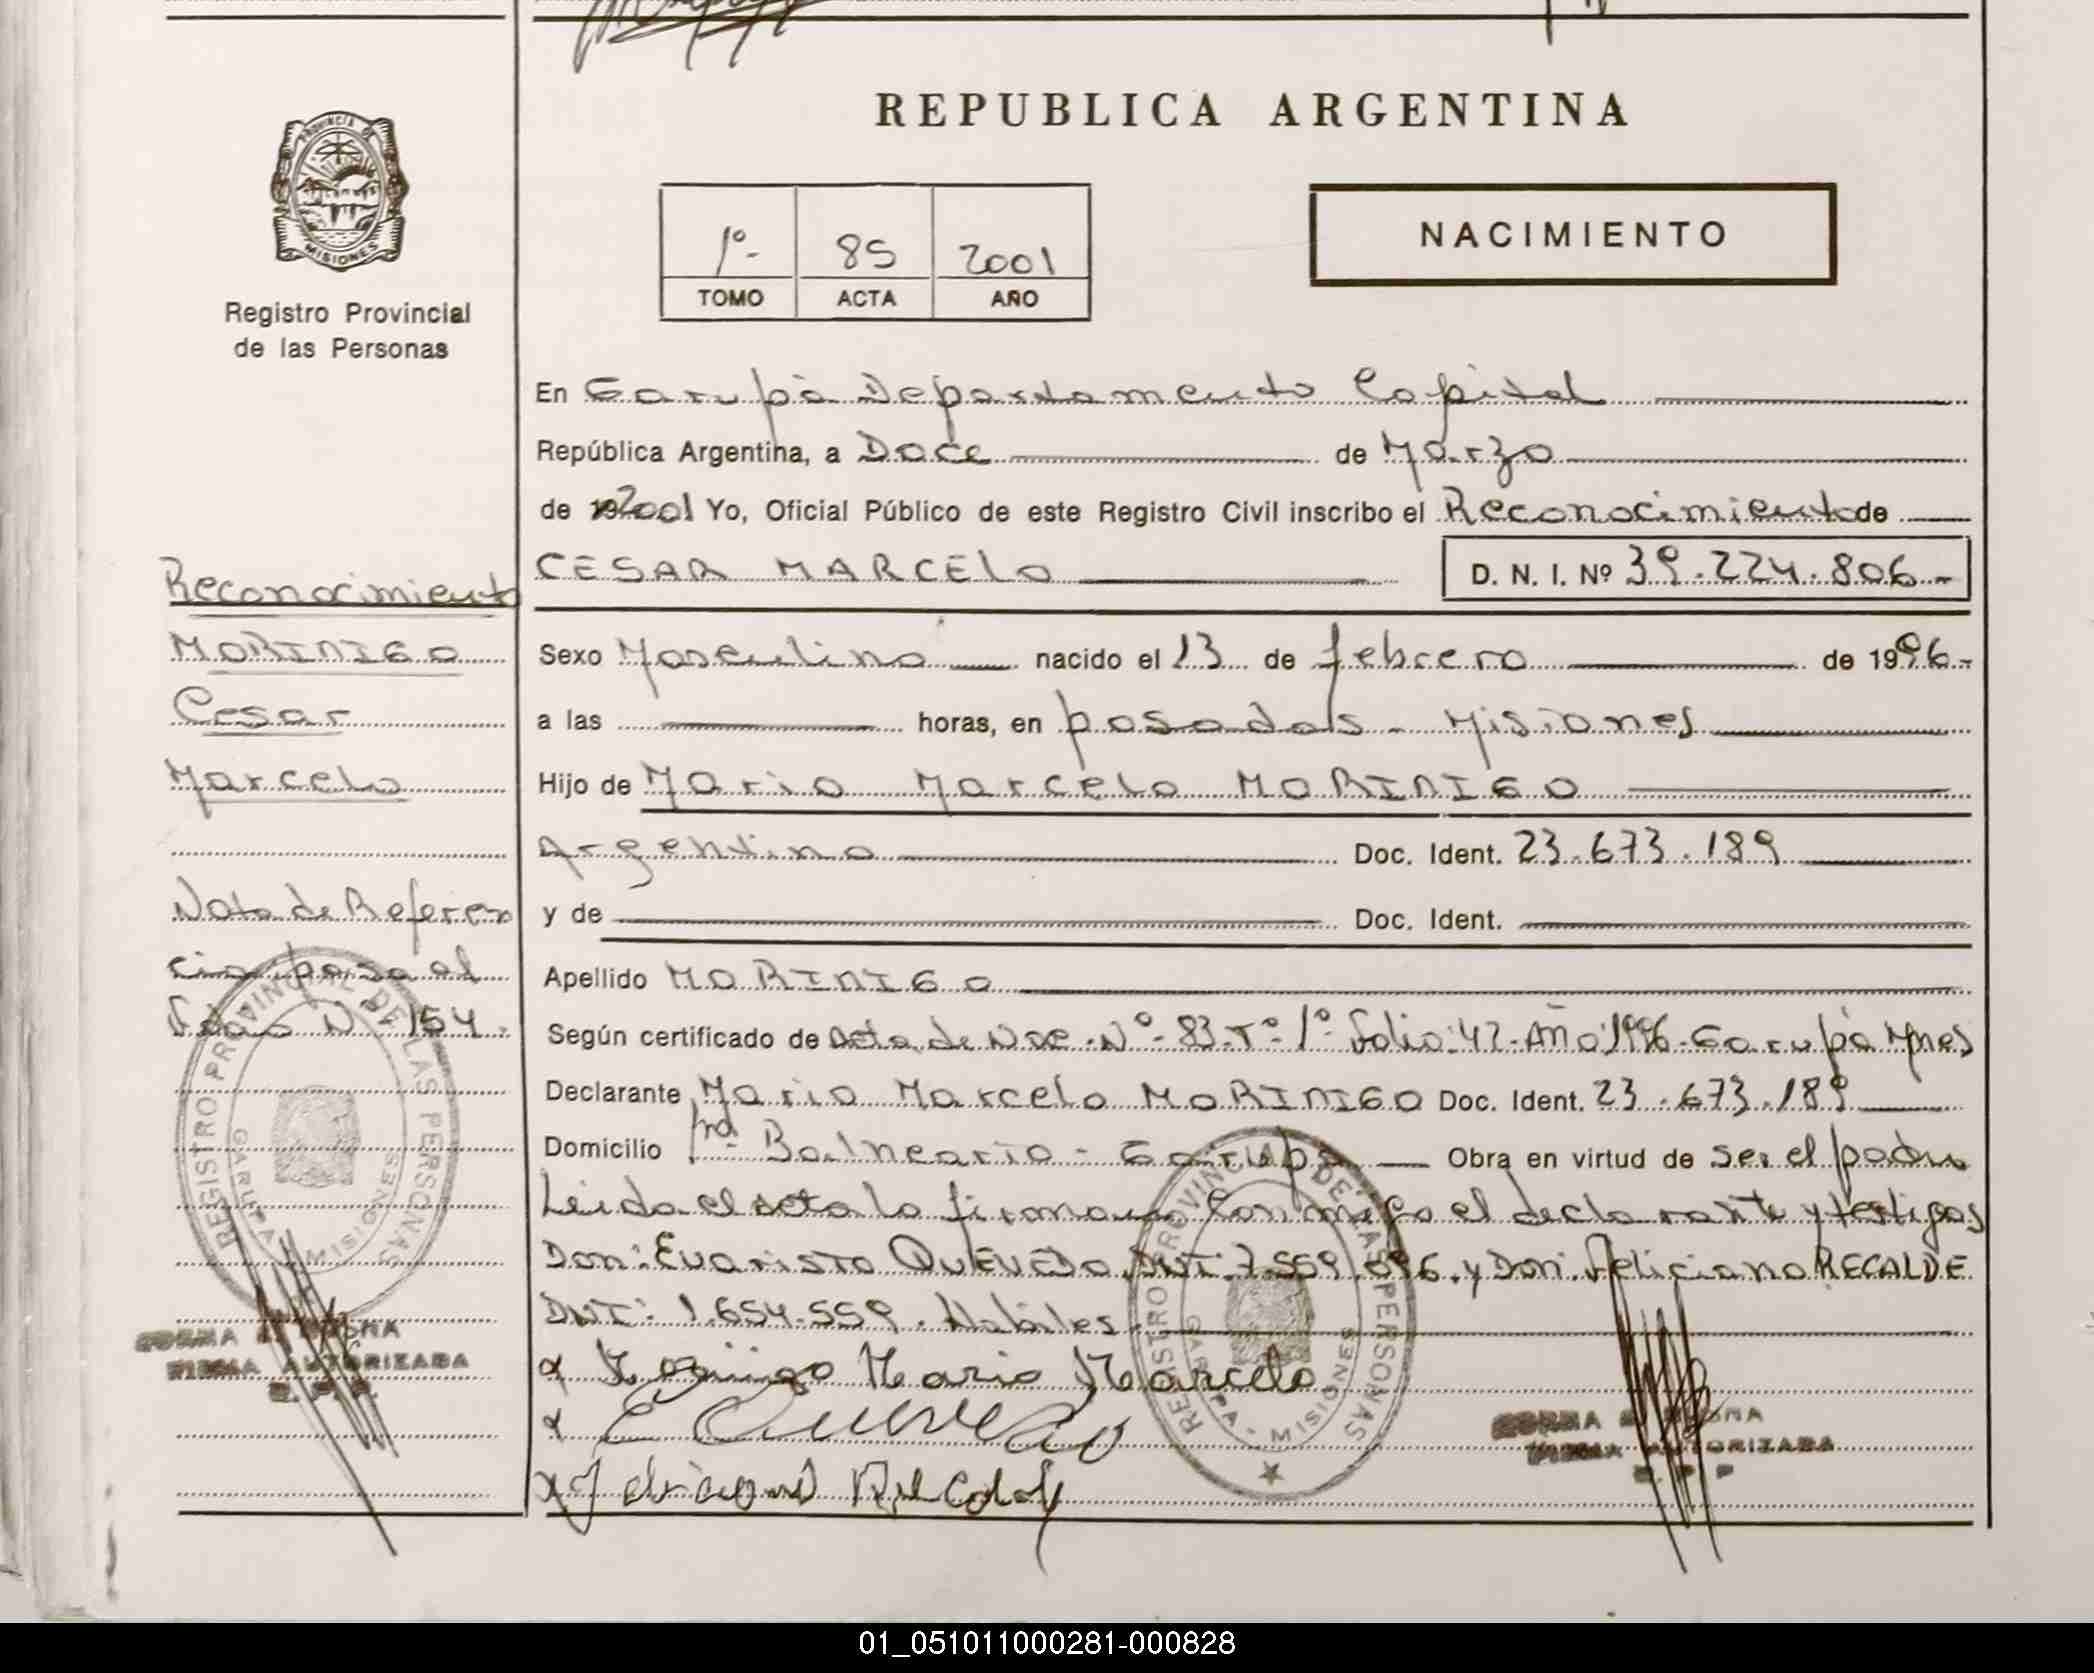 REPUBLICA ARGENTINA
PROVINCIA DE
MISIONES
Registro Provincial
de las Personas
1º- 85 2001
TOMO ACTA AÑO
NACIMIENTO
En Garupà Departamento Capital
República Argentina, a Doce de Marzo
de 2001 Yo, Oficial Público de este Registro Civil inscribo el Reconocimiento de
CESAR MARCELO D. N. I. Nº 39.224.806.-
Sexo Masculino nacido el 13 de febrero de 1996.-
a las horas, en posadas - Misiones
Hijo de Mario Marcelo MORINIGO
Argentino Doc. Ident. 23.673.189
y de Doc. Ident.
Apellido MORINIGO
Según certificado de Acta de Nac. Nº- 83. Tº- 1º folio: 42- Año: 1996- Garupà Mnes
Declarante Mario Marcelo MORINIGO Doc. Ident. 23.673.189
Domicilio Balneario - Garupa Obra en virtud de ser el padre
Leida el acta la firman conmigo el declarante y testigos
Don: Evaristo QUEVEDO DNI: 7.559.096. y Don: Feliciano RECALDE
DNI: 1.654.559. Habiles-
Morinigo Mario Marcelo
E Quevedo
Feliciano Recalde
Reconocimiento
MORINIGO
Cesar
Marcelo
Nota de Referen
cia pasa al
folio Nº 154.
REGISTRO PROVINCIAL DE LAS PERSONAS
GARUPA - MISIONES
FIRMA AUTORIZADA
R. P. P.
REGISTRO PROVINCIAL DE LAS PERSONAS
GARUPA - MISIONES
FIRMA AUTORIZADA
R. P. P
01_051011000281-000828